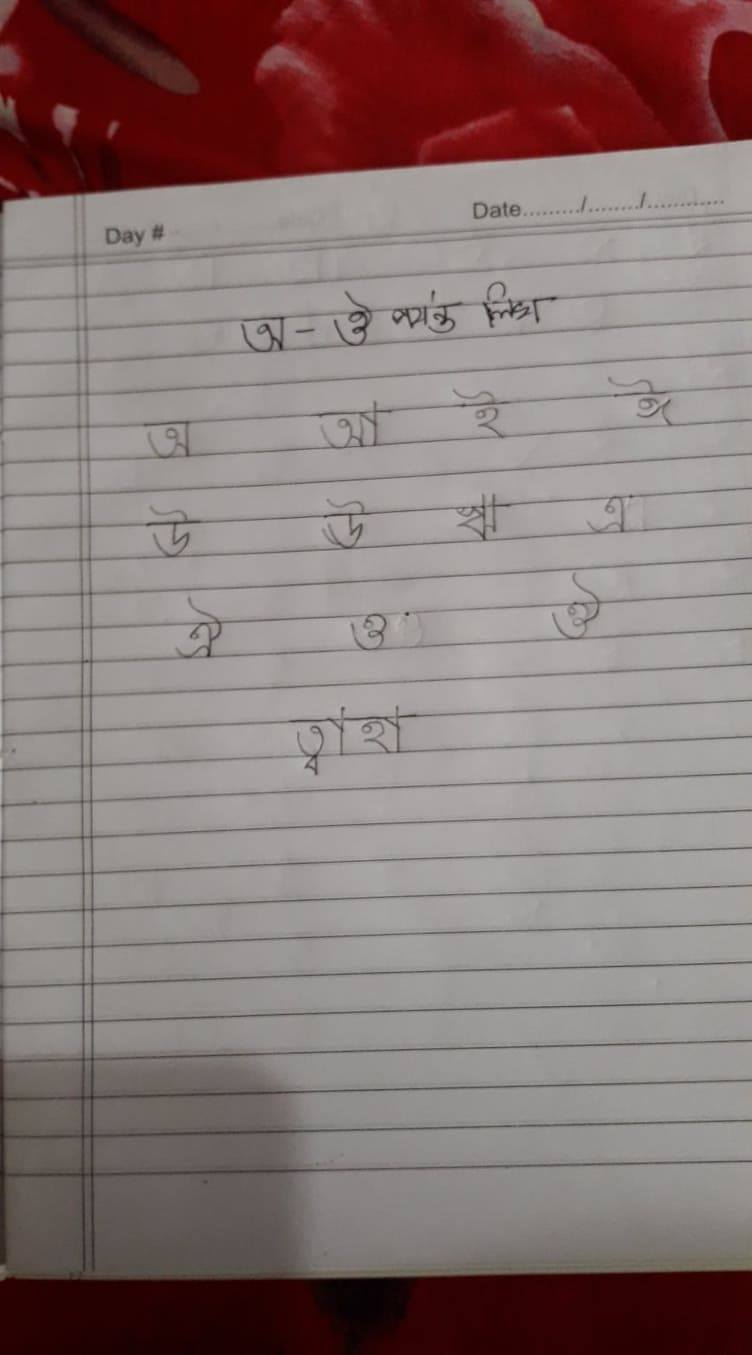 Day #
Date........./......../............
অ - ঔ পর্যন্ত লিখ
অ আ ই ঈ
উ ঊ ঋ এ
ঐ ও ঔ